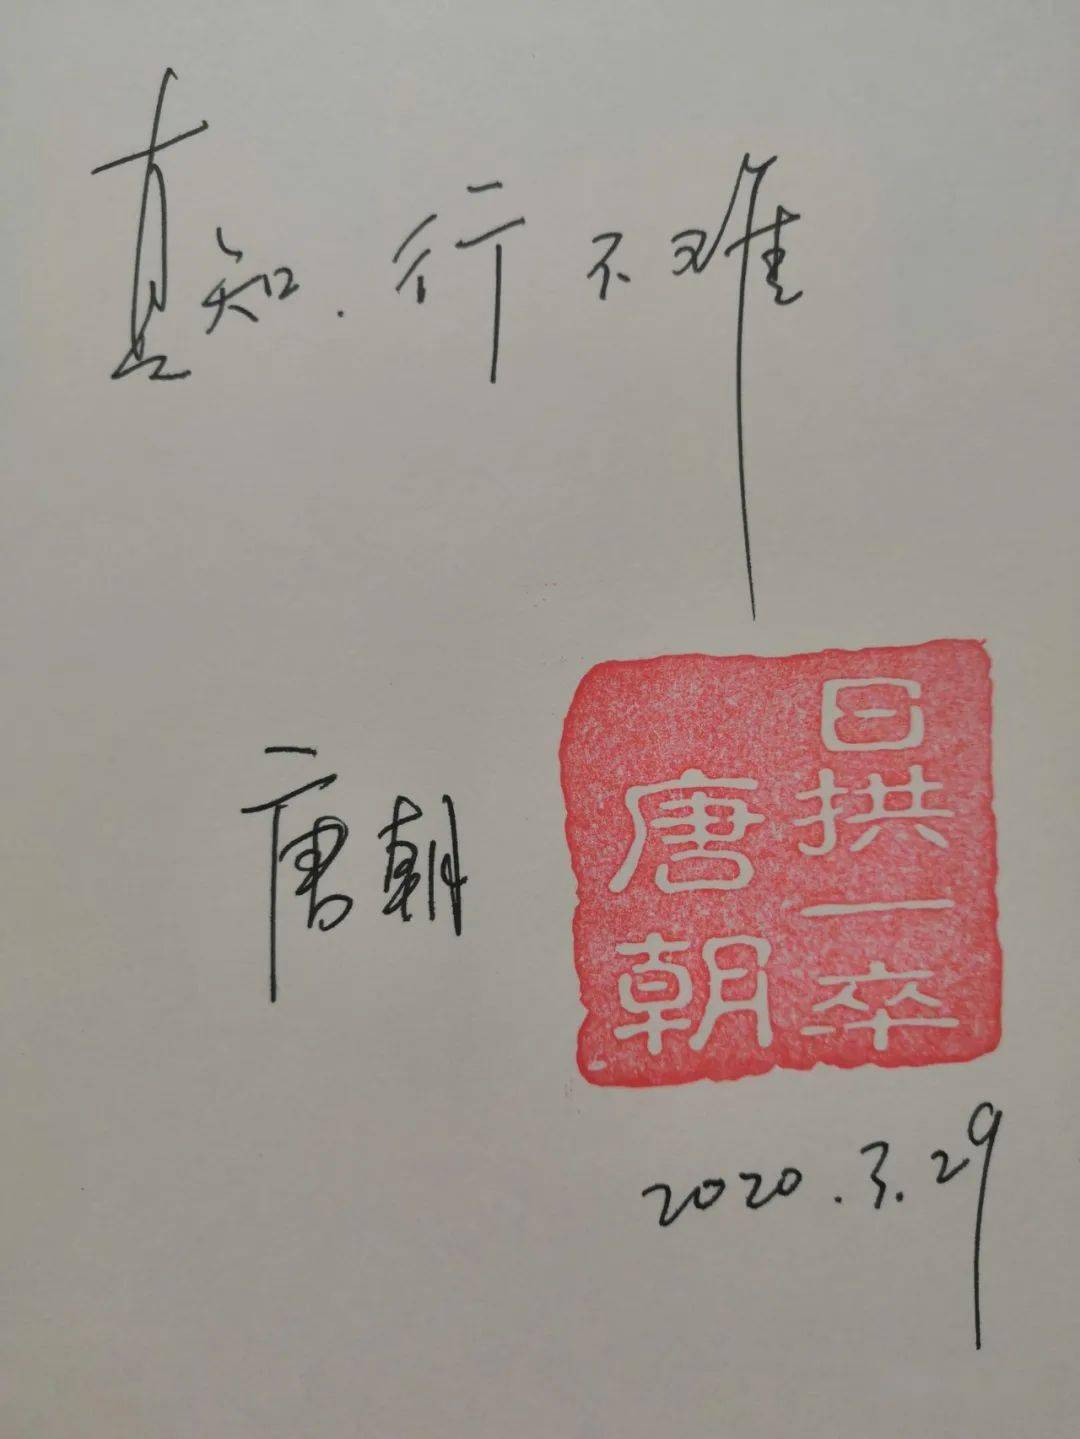 真知.行不难
唐朝
日拱一卒
唐朝
2020.3.29